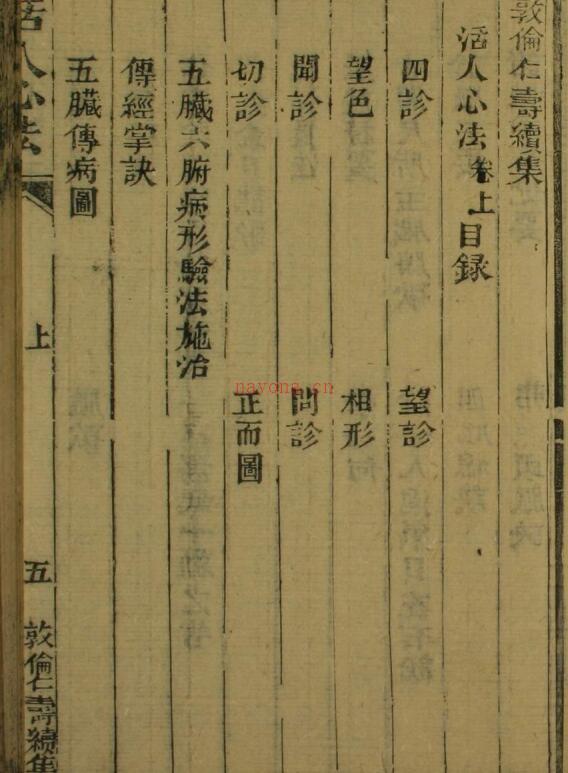 敦倫仁壽續集
活人心法卷上目録
四診 望診
望色 相形
聞診 問診
切診 正而圖
五臟六腑病形驗法施治
傳經掌訣
五臟傳病圖
活人心法 上 五 敦倫仁壽續集
nayong.cn